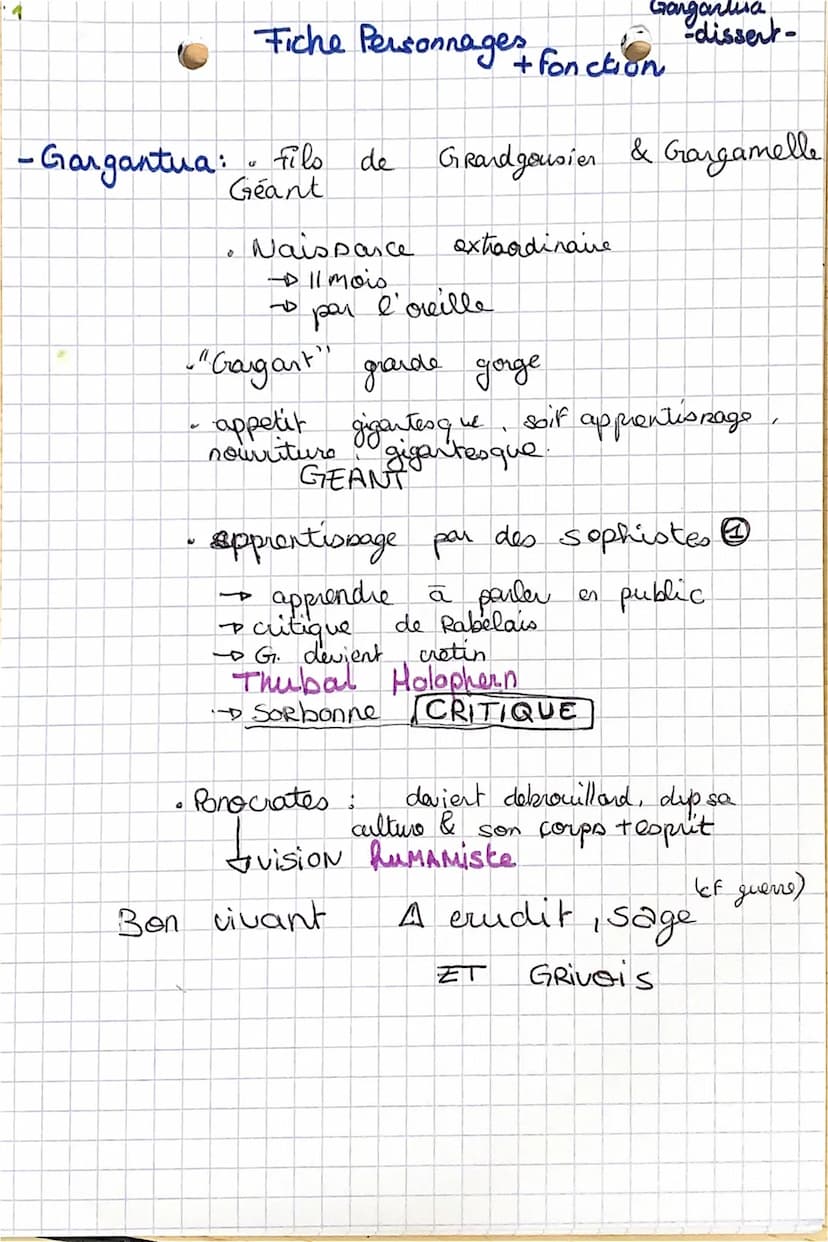 1
Gargantua
-dissert-
Fiche Personnages
+ fonction
- Gargantua: • fils de Grandgousier & Gargamelle
Géant
• Naissance extraordinaire
→ 11 mois
→ par l'oreille
• "Gargant" grande gorge
• appetit gigantesque, soif apprentissage,
nourriture : gigantesque.
GEANT
• apprentissage par des sophistes ①
→ apprendre à parler en public
→ critique de Rabelais
→ G. devient cretin
Thubal Holophern
→ Sorbonne CRITIQUE
• Ponocrates : devient debrouillard, dvp sa
culture & son corps + esprit
↓ vision HUMANiste
(cf guerre)
Bon vivant Δ erudit, sage
ET GRIVOIS